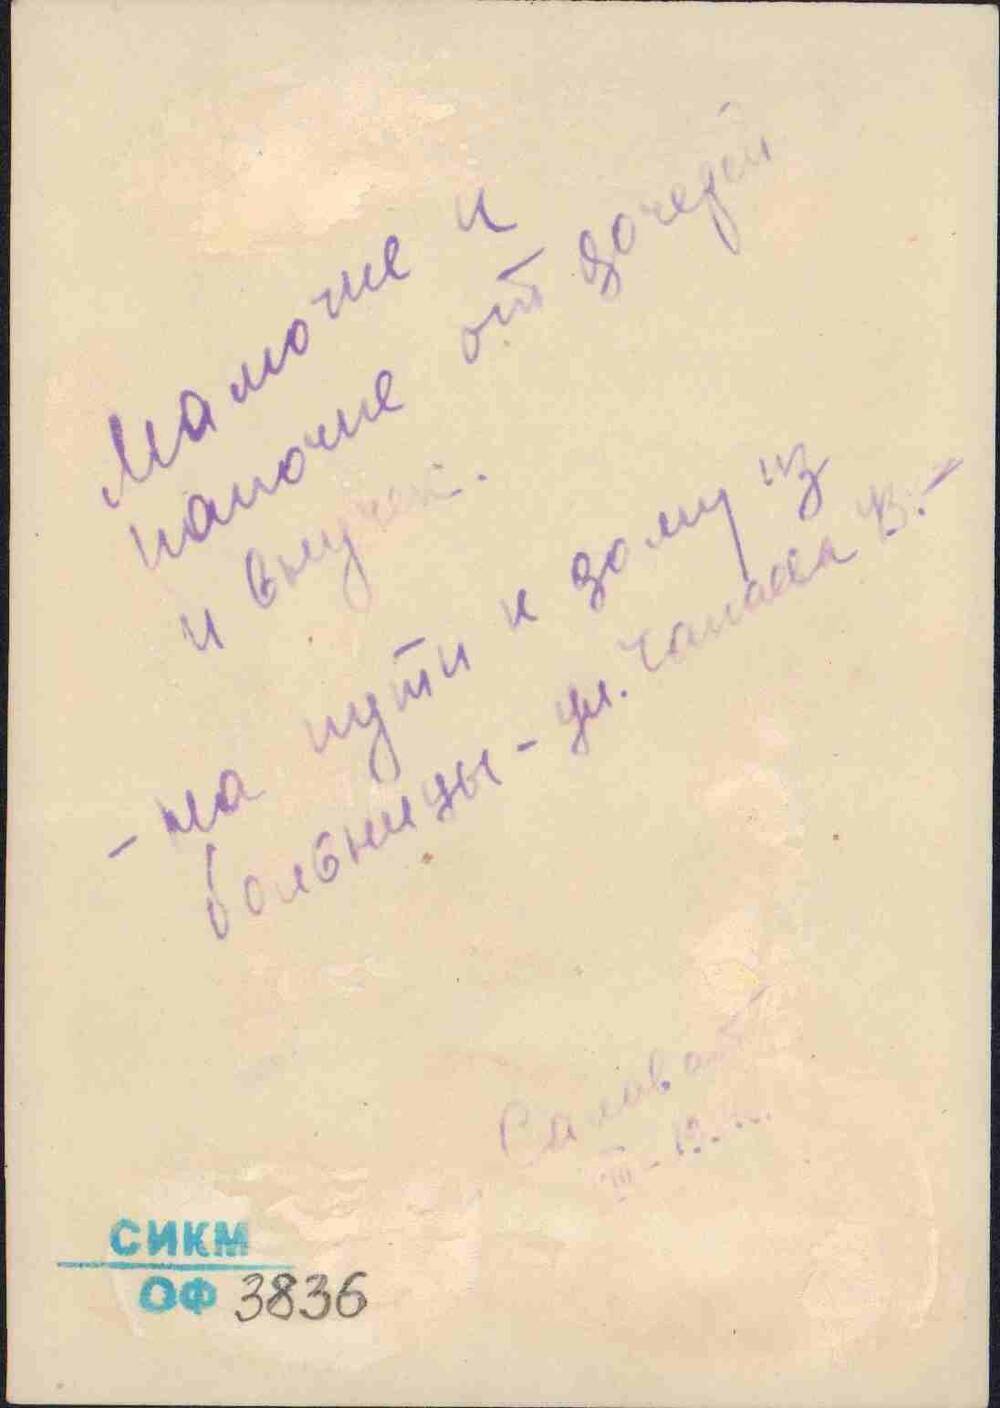 Мамочке и
папочке от дочерей
и внучек.
- на пути к дому из
больницы - ул. Чапаева
Салават
СИКМ
ОФ 3836